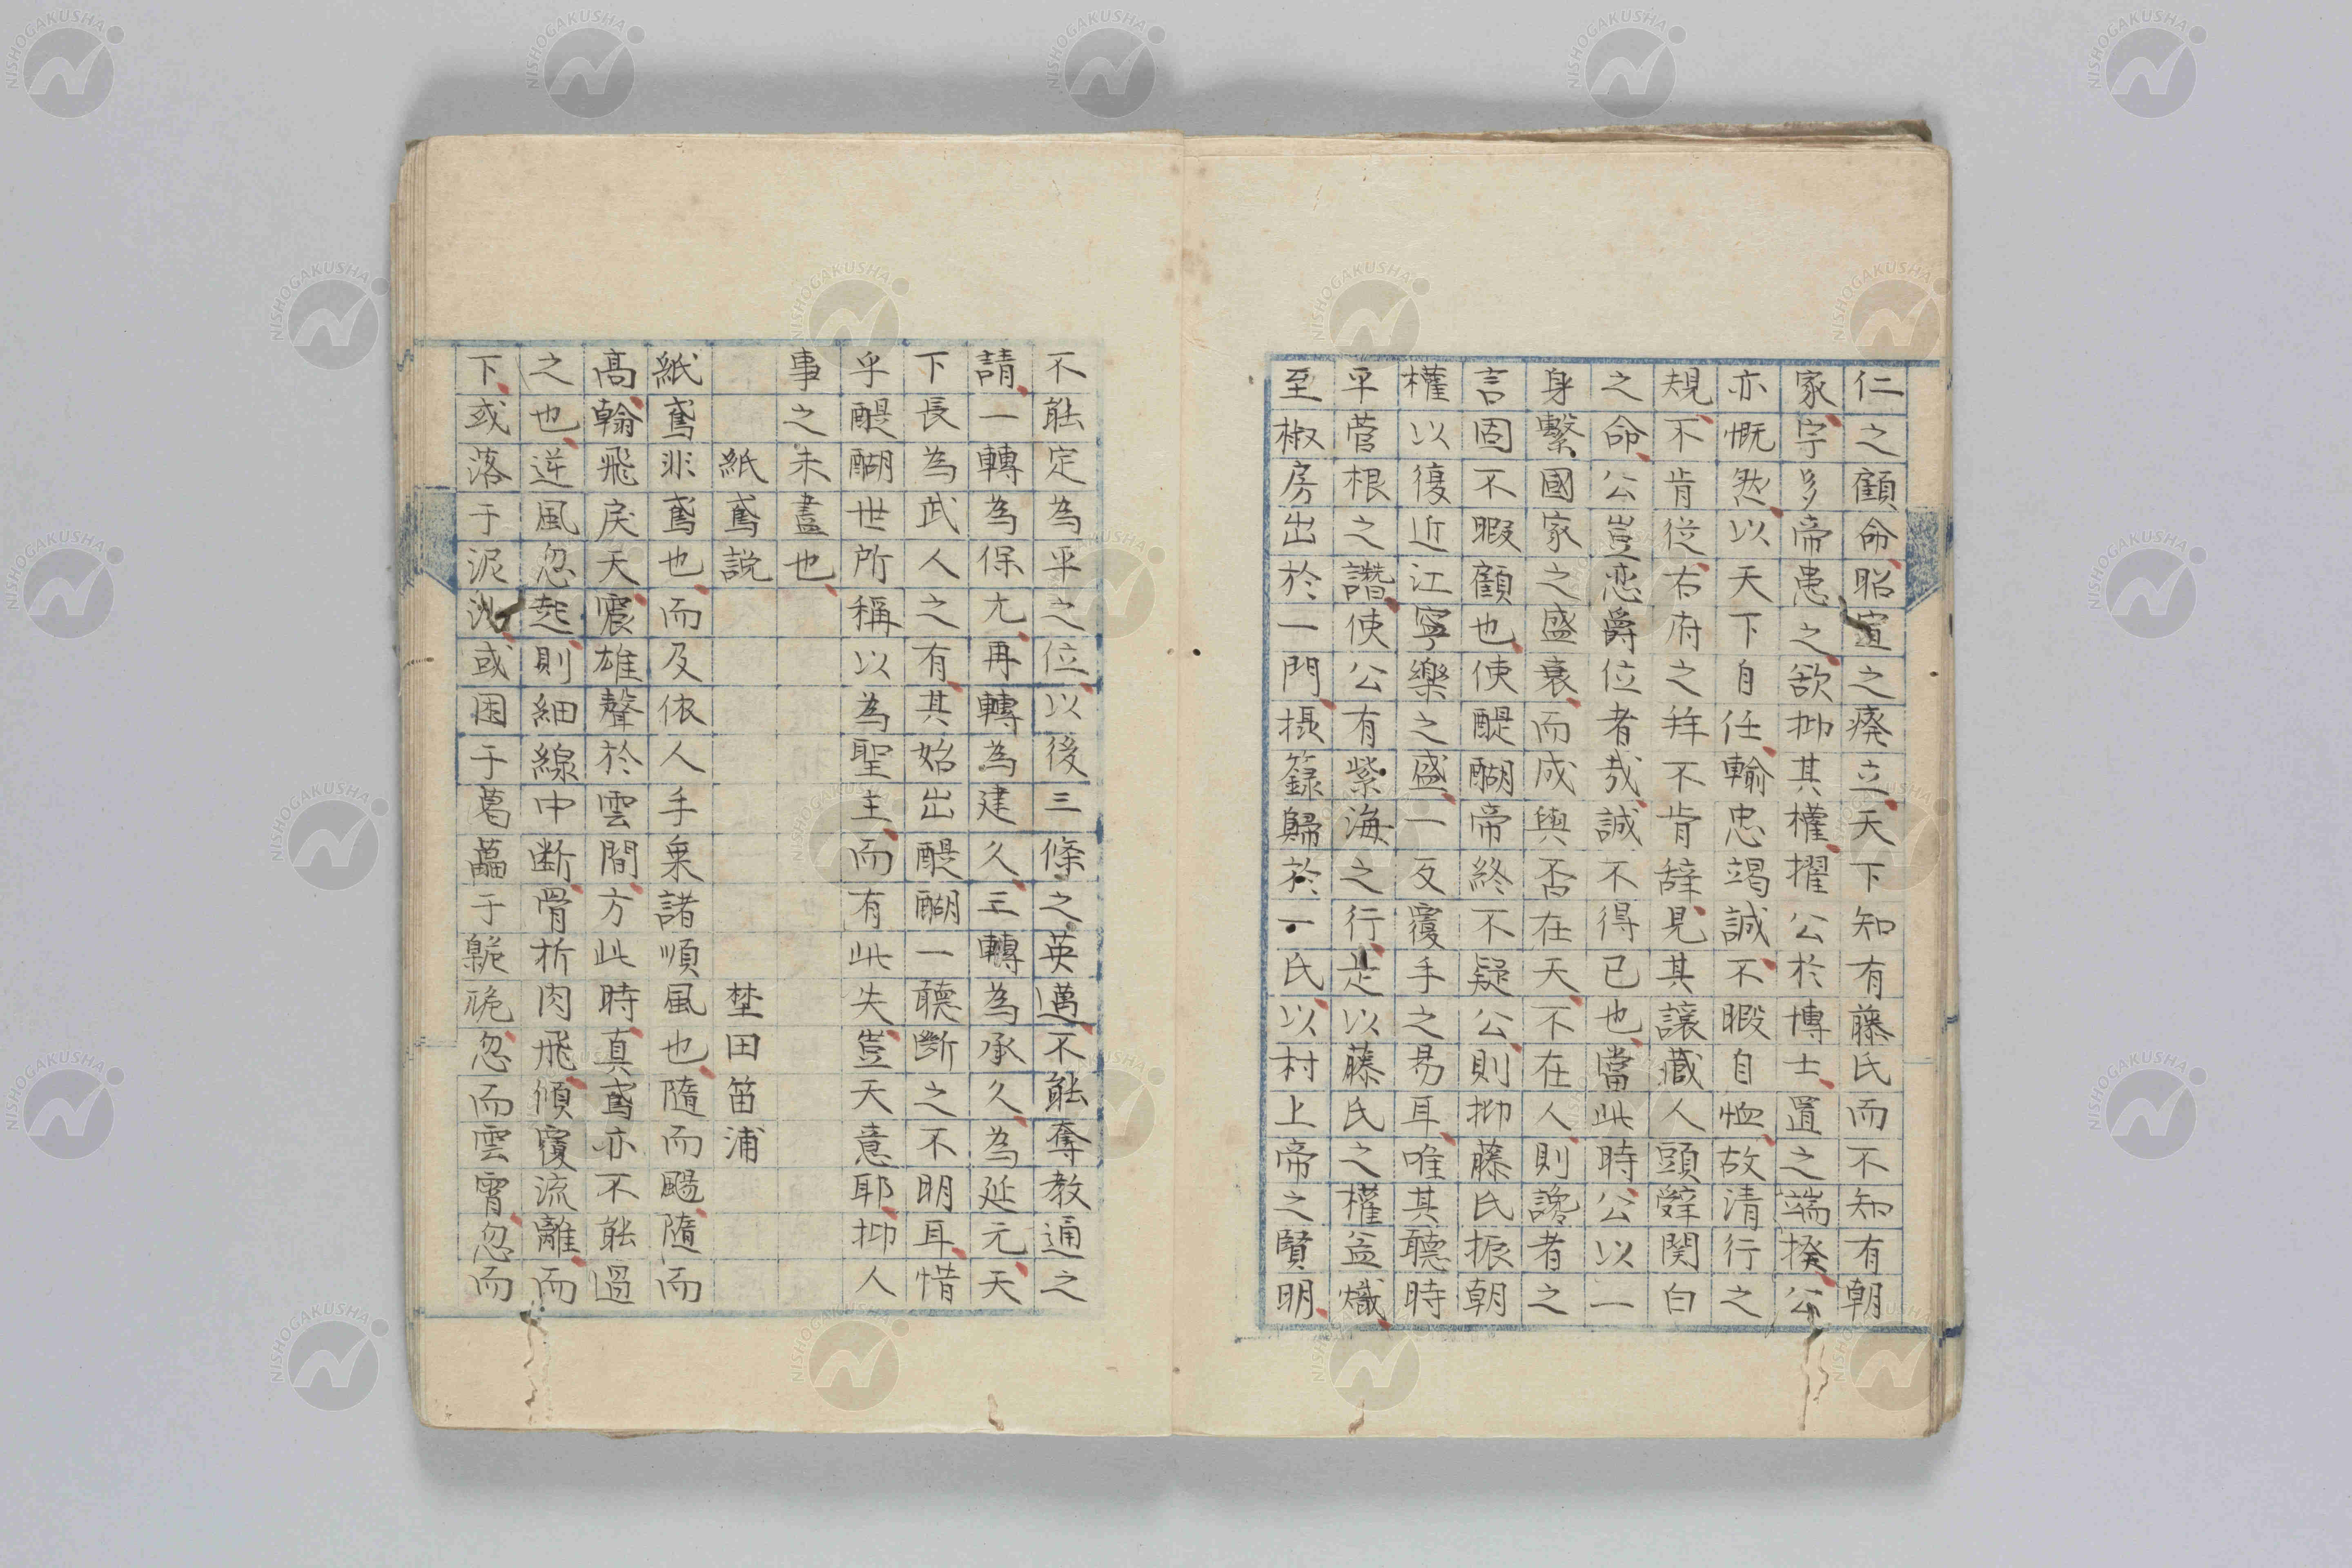 仁之顧命昭宣之癈立天下知有藤氏而不知有朝
家宇多帝患之欲抑其權擢公於博士置之端揆公
亦慨然以天下自任輸忠竭誠不暇自恤故清行之
規不肯從右府之拜不肯辞見其讓藏人頭辤関白
之命公豈恋爵位者哉誠不得已也當此時公以一
身繫國家之盛衰而成與否在天不在人則讒者之
言固不暇顧也使醍醐帝終不疑公則抑藤氏振朝
權以復近江寧樂之盛一反覆手之易耳唯其聽時
平菅根之譖使公有紫海之行是以藤氏之權益熾
至椒房出於一門摂籙歸於一氏以村上帝之賢明
不能定為平之位以後三條之英邁不能奪教通之
請一轉為保元再轉為建久三轉為承久為延元天
下長為武人之有其始出醍醐一聽斷之不明耳惜
乎醍醐世所稱以為聖主而有此失豈天意耶抑人
事之未盡也
紙鳶説 埜田笛浦
紙鳶非鳶也而及依人手乗諸順風也隨而颺隨而
高翰飛戻天震雄聲於雲間方此時真鳶亦不能過
之也逆風忽起則細線中断骨折肉飛傾覆流離而
下或落于泥沙或困于葛藟于臲卼忽而雲霄忽而
NISHOGAKUSHA